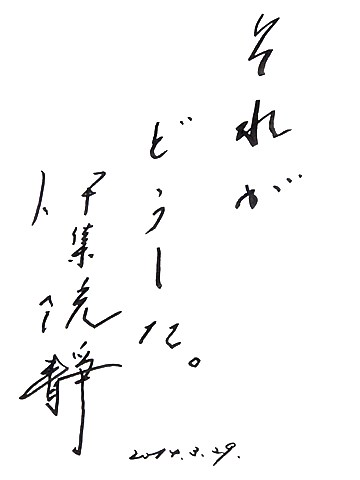 それが
どうした。
伊集院静
2014.3.29.